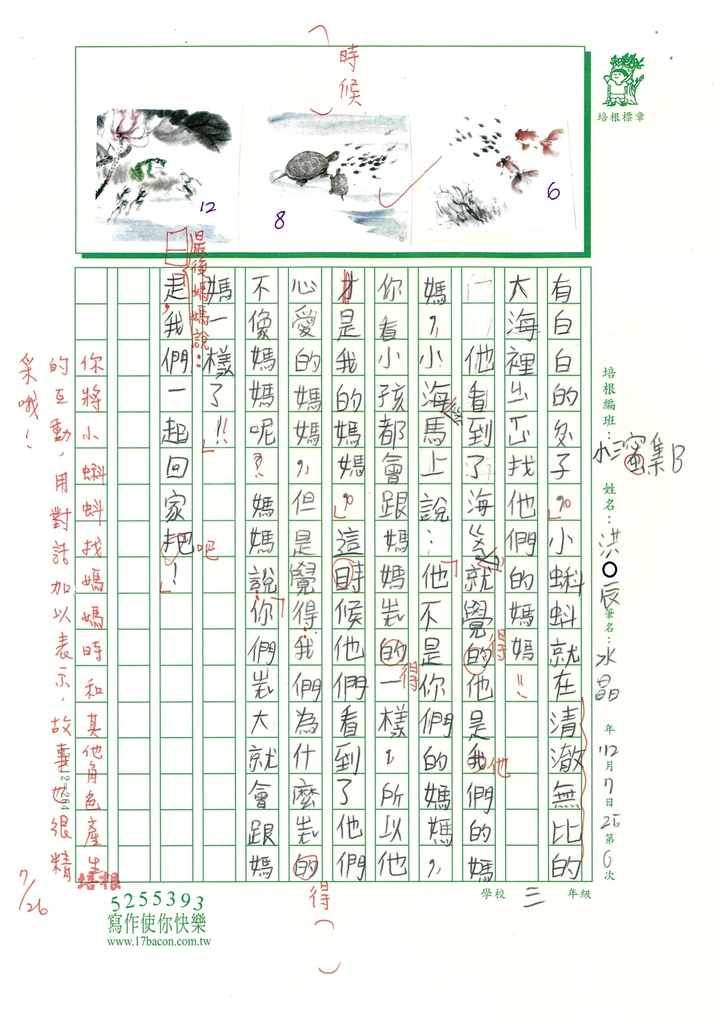 時候
培根標章
12
8
6
培根編班：
小瀋集B
姓名：洪○辰
筆名：水晶
年112月7日25第6次
學校 三 年級
有白白的肚子。小蝌蚪就在清澈無比的
大海裡出去找他們的媽媽!!
他看到了海芝就覺的他是我們的媽
媽，小海馬上說：他不是你們的媽媽，
你看小孩都會跟媽媽長的一樣，所以他
才是我的媽媽。這時候他們看到了他們
心愛的媽媽，但是覺得我們為什麼長的
不像媽媽呢？媽媽說你們長大就會跟媽
媽一樣了!!
走我們一起回家把！
最後媽媽說：
得
他
得
得
吧
你將小蝌蚪找媽媽時和其他角色產生
的互動，用對話加以表示，故事也很精
采哦！
7/26
培根
5255393
寫作使你快樂
www.17bacon.com.tw